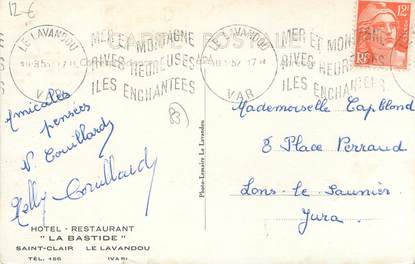 12-6
LE LAVANDOU
VAR
MER ET MONTAGNE
RIVES HEUREUSES
ILES ENCHANTEES
CARTE POSTALE
LE LAVANDOU
VAR
MER ET MONTAGNE
RIVES HEUREUSES
ILES ENCHANTEES
12F
Amicales
pensées
N. Couillard
Nelly Couillard
83
HOTEL - RESTAURANT
" LA BASTIDE "
SAINT-CLAIR LE LAVANDOU
TÉL. 156 (VAR)
Photo-Lemaire Le Lavandou
Mademoiselle Capblond
8 Place Perraud
Lons-le-Saunier
Jura